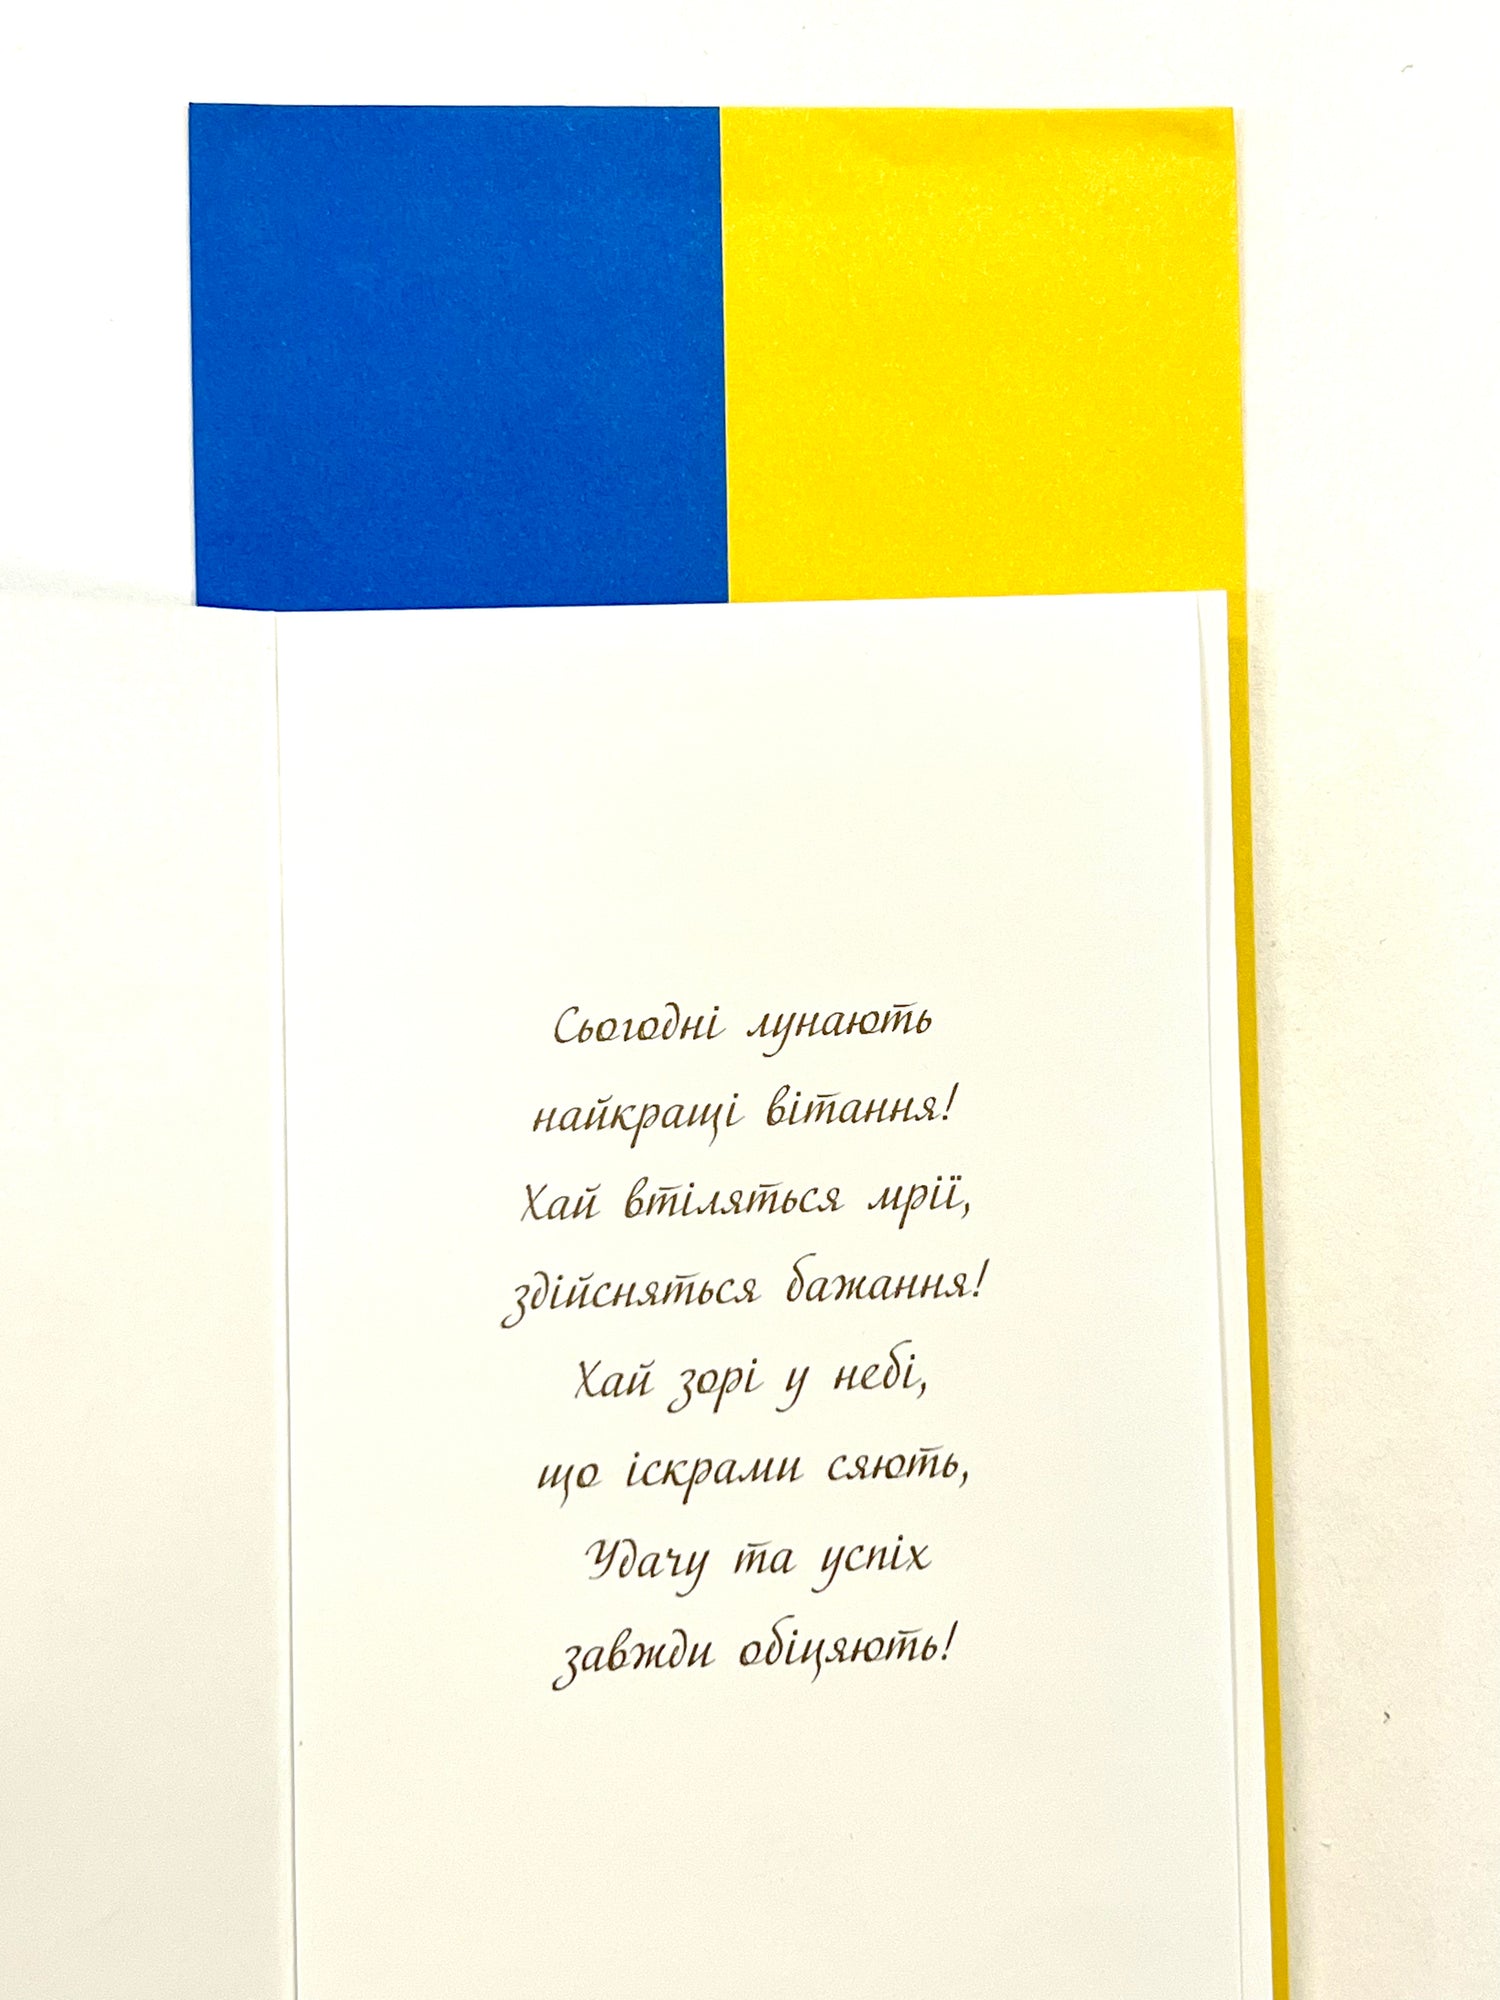 Сьогодні лунають
найкращі вітання!
Хай втіляться мрії,
здійсняться бажання!
Хай зорі у небі,
що іскрами сяють,
Удачу та успіх
завжди обіцяють!